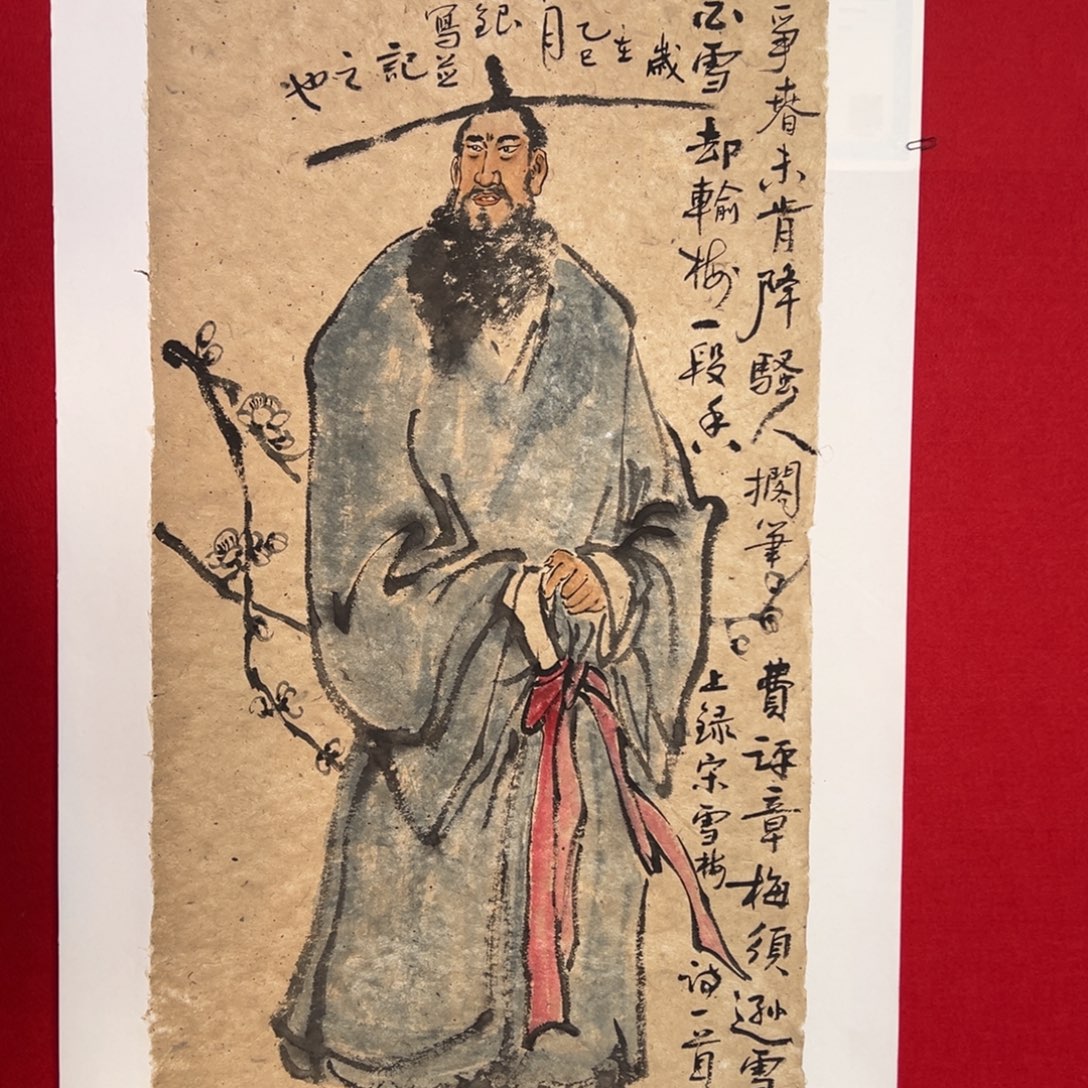 爭春未肯降騷人擱筆費評章梅須遜雪
白雪却輸梅一段香
上録宋雪梅詩一首
歲
在
乙巳
月
銀
寫並
記
之
也